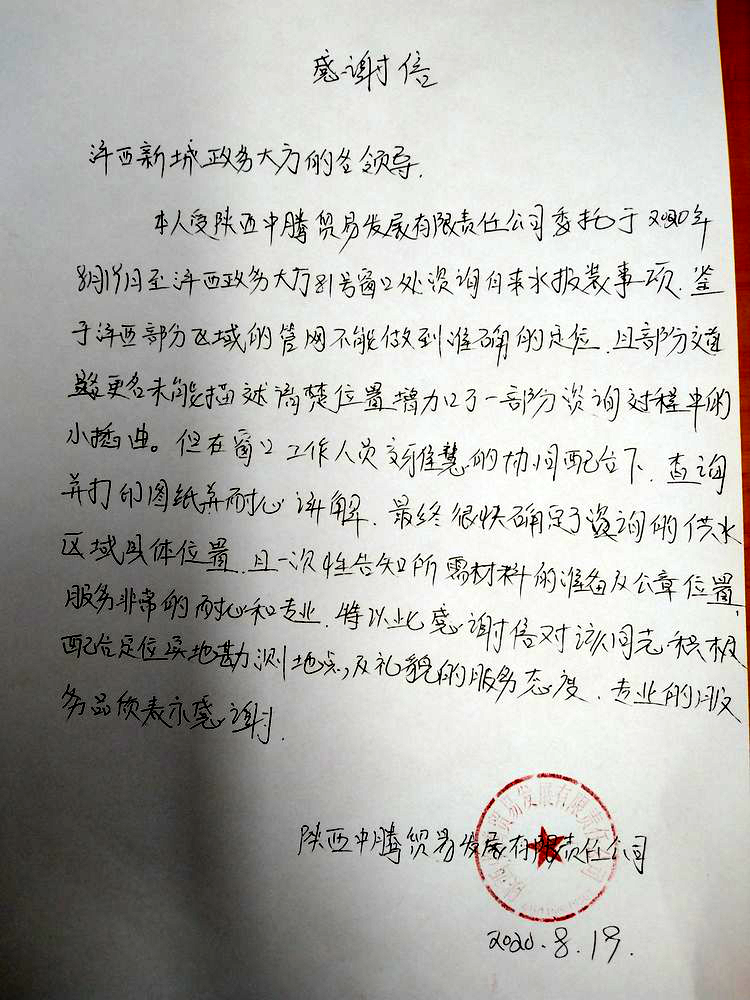 感谢信
沣西新城政务大厅的各领导.
本人受陕西中腾贸易发展有限责任公司委托于2020年
8月19日至沣西政务大厅81号窗口处咨询自来水报装事项.鉴
于沣西部分区域的管网不能做到准确的定位.且部分道
路更名未能描述清楚位置增加了一部分咨询过程中的
小插曲。但在窗口工作人员雅慧的协同配合下.查询
并打印图纸并耐心讲解.最终很快确定了咨询的供水
区域具体位置.且一次性告知所需材料的准备及公章位置,
服务非常的耐心和专业.特以此感谢信对该同志积极
配合定位实地勘测地点,及礼貌的服务态度.专业的服
务品质表示感谢.
贸易发展有限责任公司
陕西中腾贸易发展有限责任公司
2020.8.19.